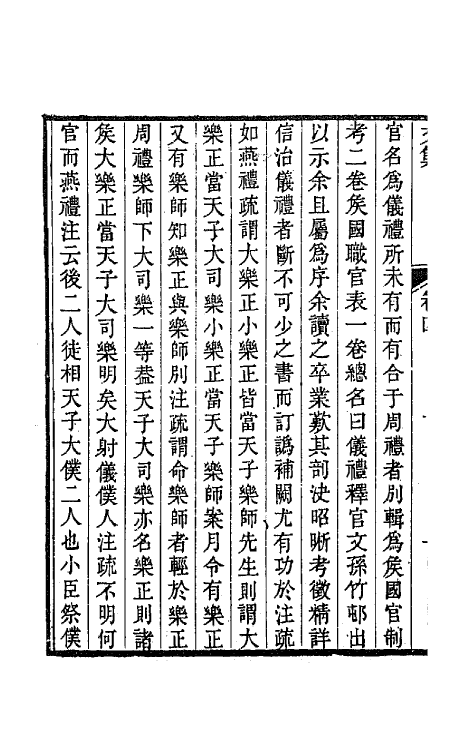 官名爲儀禮所未有而有合于周禮者别輯爲矦國官制
考二卷矦國職官表一卷總名曰儀禮釋官文孫竹邨出
以示余且屬爲序余讀之卒業歎其剖决昭晰考徵精詳
信治儀禮者斷不可少之書而訂譌補闕尤有功於注疏
如燕禮疏謂大樂正小樂正皆當天子樂師先生則謂大
樂正當天子大司樂小樂正當天子樂師案月令有樂正
又有樂師知樂正與樂師别注疏謂命樂師者輕於樂正
周禮樂師下大司樂一等葢天子大司樂亦名樂正則諸
矦大樂正當天子大司樂明矣大射儀僕人注疏不明何
官而燕禮注云後二人徒相天子大僕二人也小臣祭僕